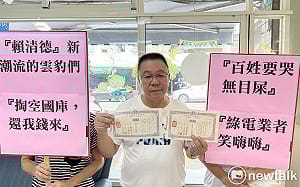 『賴清德』新
潮流的雲豹們
『掏空國庫，
還我錢來』
『百姓要哭
無目屎』
『綠電業者
笑嗨嗨』
newtalk